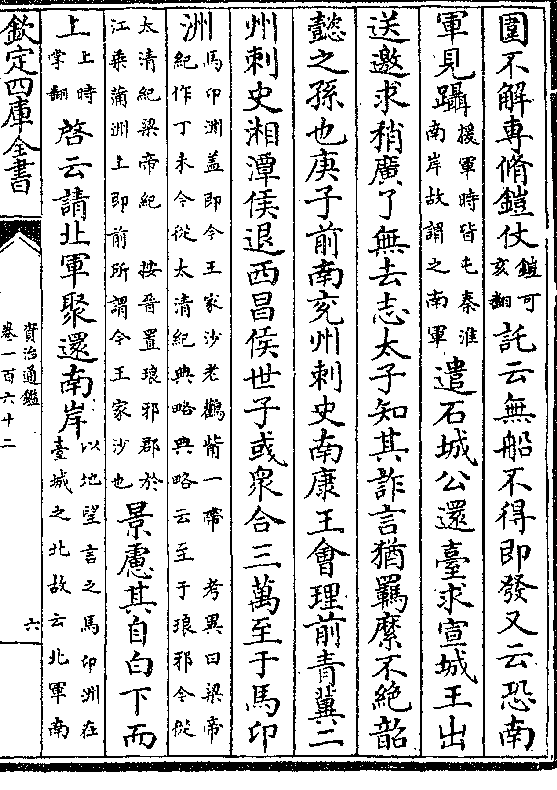 圍不解專脩鎧仗鎧可亥翻託云無船不得即發又云恐南
軍見躡援軍時皆屯秦淮南岸故謂之南軍遣石城公還臺求宣城王出
送邀求稍廣了無去志太子知其詐言猶羈縻不絶韶
懿之孫也庚子前南兖州刺史南康王會理前青冀二
州刺史湘潭侯退西昌侯世子彧衆合三萬至于馬卬
洲馬卬洲盖即今王家沙老鸛觜一帶考異曰梁帝紀作丁未今從太清紀典略典略云至于琅邪今從
太清紀梁帝紀按晉置琅邪郡於江乘蒲洲上即前所謂今王家沙也景慮其自白下而
上上時掌翻啓云請北軍聚還南岸以地望言之馬卬洲在臺城之北故云北軍南
欽定四庫全書
資治通鑑
卷一百六十二
六